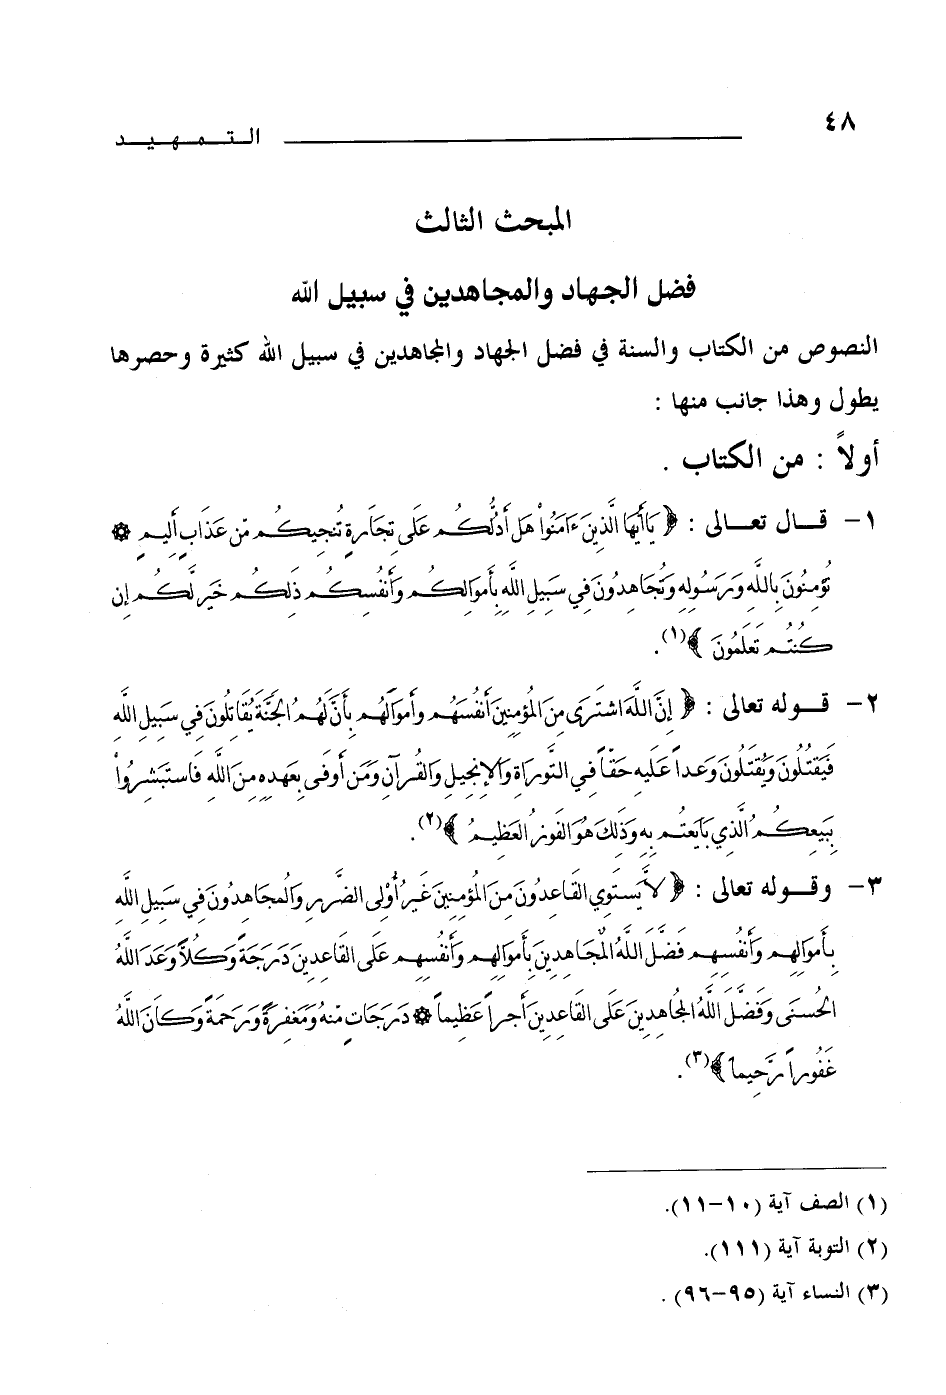 ٤٨
التمهيد
المبحث الثالث
فضل الجهاد والمجاهدين في سبيل الله
النصوص من الكتاب والسنة في فضل الجهاد والمجاهدين في سبيل الله كثيرة وحصرها
يطول وهذا جانب منها :
أولاً : من الكتاب .
١- قال تعالى : ﴿ يَاأَيُّهَا الَّذِينَ ءَامَنُواْ هَل أَدُلُّكُم عَلَى تِجَارَةٍ تُنجِيكُم مّن عَذَابٍ أَلِيمٍ ۞
تُؤمِنُونَ بِاللَّهِ وَرَسُولِهِ وَتُجَاهِدُونَ فِي سَبِيلِ اللَّهِ بِأَموَالِكُم وَأَنفُسِكُم ذَلِكُم خَير لَّكُم إِن
كُنتُم تَعلَمُونَ ﴾(١).
٢- قوله تعالى : ﴿ إِنَّ اللَّهَ اشتَرَى مِنَ المُؤمِنِينَ أَنفُسَهُم وَأَموَالَهُم بِأَنَّ لَهُمُ الجَنَّةَ يُقَاتِلُونَ فِي سَبِيلِ اللَّهِ
فَيَقتُلُونَ وَيُقتَلُونَ وَعداً عَلَيهِ حَقّاً فِي التَّورَاةِ وَالإِنجِيلِ وَالقُرآنِ وَمَن أَوفَى بِعَهدِهِ مِنَ اللَّهِ فَاستَبشِرُواْ
بِبَيعِكُمُ الَّذِي بَايَعتُم بِهِ وَذَلِكَ هُوَ الفَوزُ العَظِيمُ ﴾(٢).
٣- وقوله تعالى : ﴿ لاَّ يَستَوِي القَاعِدُونَ مِنَ المُؤمِنِينَ غَيرُ أُوْلِى الضَّرَرِ وَالمُجَاهِدُونَ فِي سَبِيلِ اللَّهِ
بِأَموَالِهِم وَأَنفُسِهِم فَضَّلَ اللَّهُ المُجَاهِدِينَ بِأَموَالِهِم وَأَنفُسِهِم عَلَى القَاعِدِينَ دَرَجَةً وَكُلاًّ وَعَدَ اللَّهُ
الحُسنَى وَفَضَّلَ اللَّهُ المُجَاهِدِينَ عَلَى القَاعِدِينَ أَجراً عَظِيماً ۞ دَرَجَاتٍ مّنهُ وَمَغفِرَةً وَرَحمَةً وَكَانَ اللَّهُ
غَفُوراً رَّحِيماً ﴾(٣).
(١) الصف آية (١٠-١١).
(٢) التوبة آية (١١١).
(٣) النساء آية (٩٥-٩٦) .